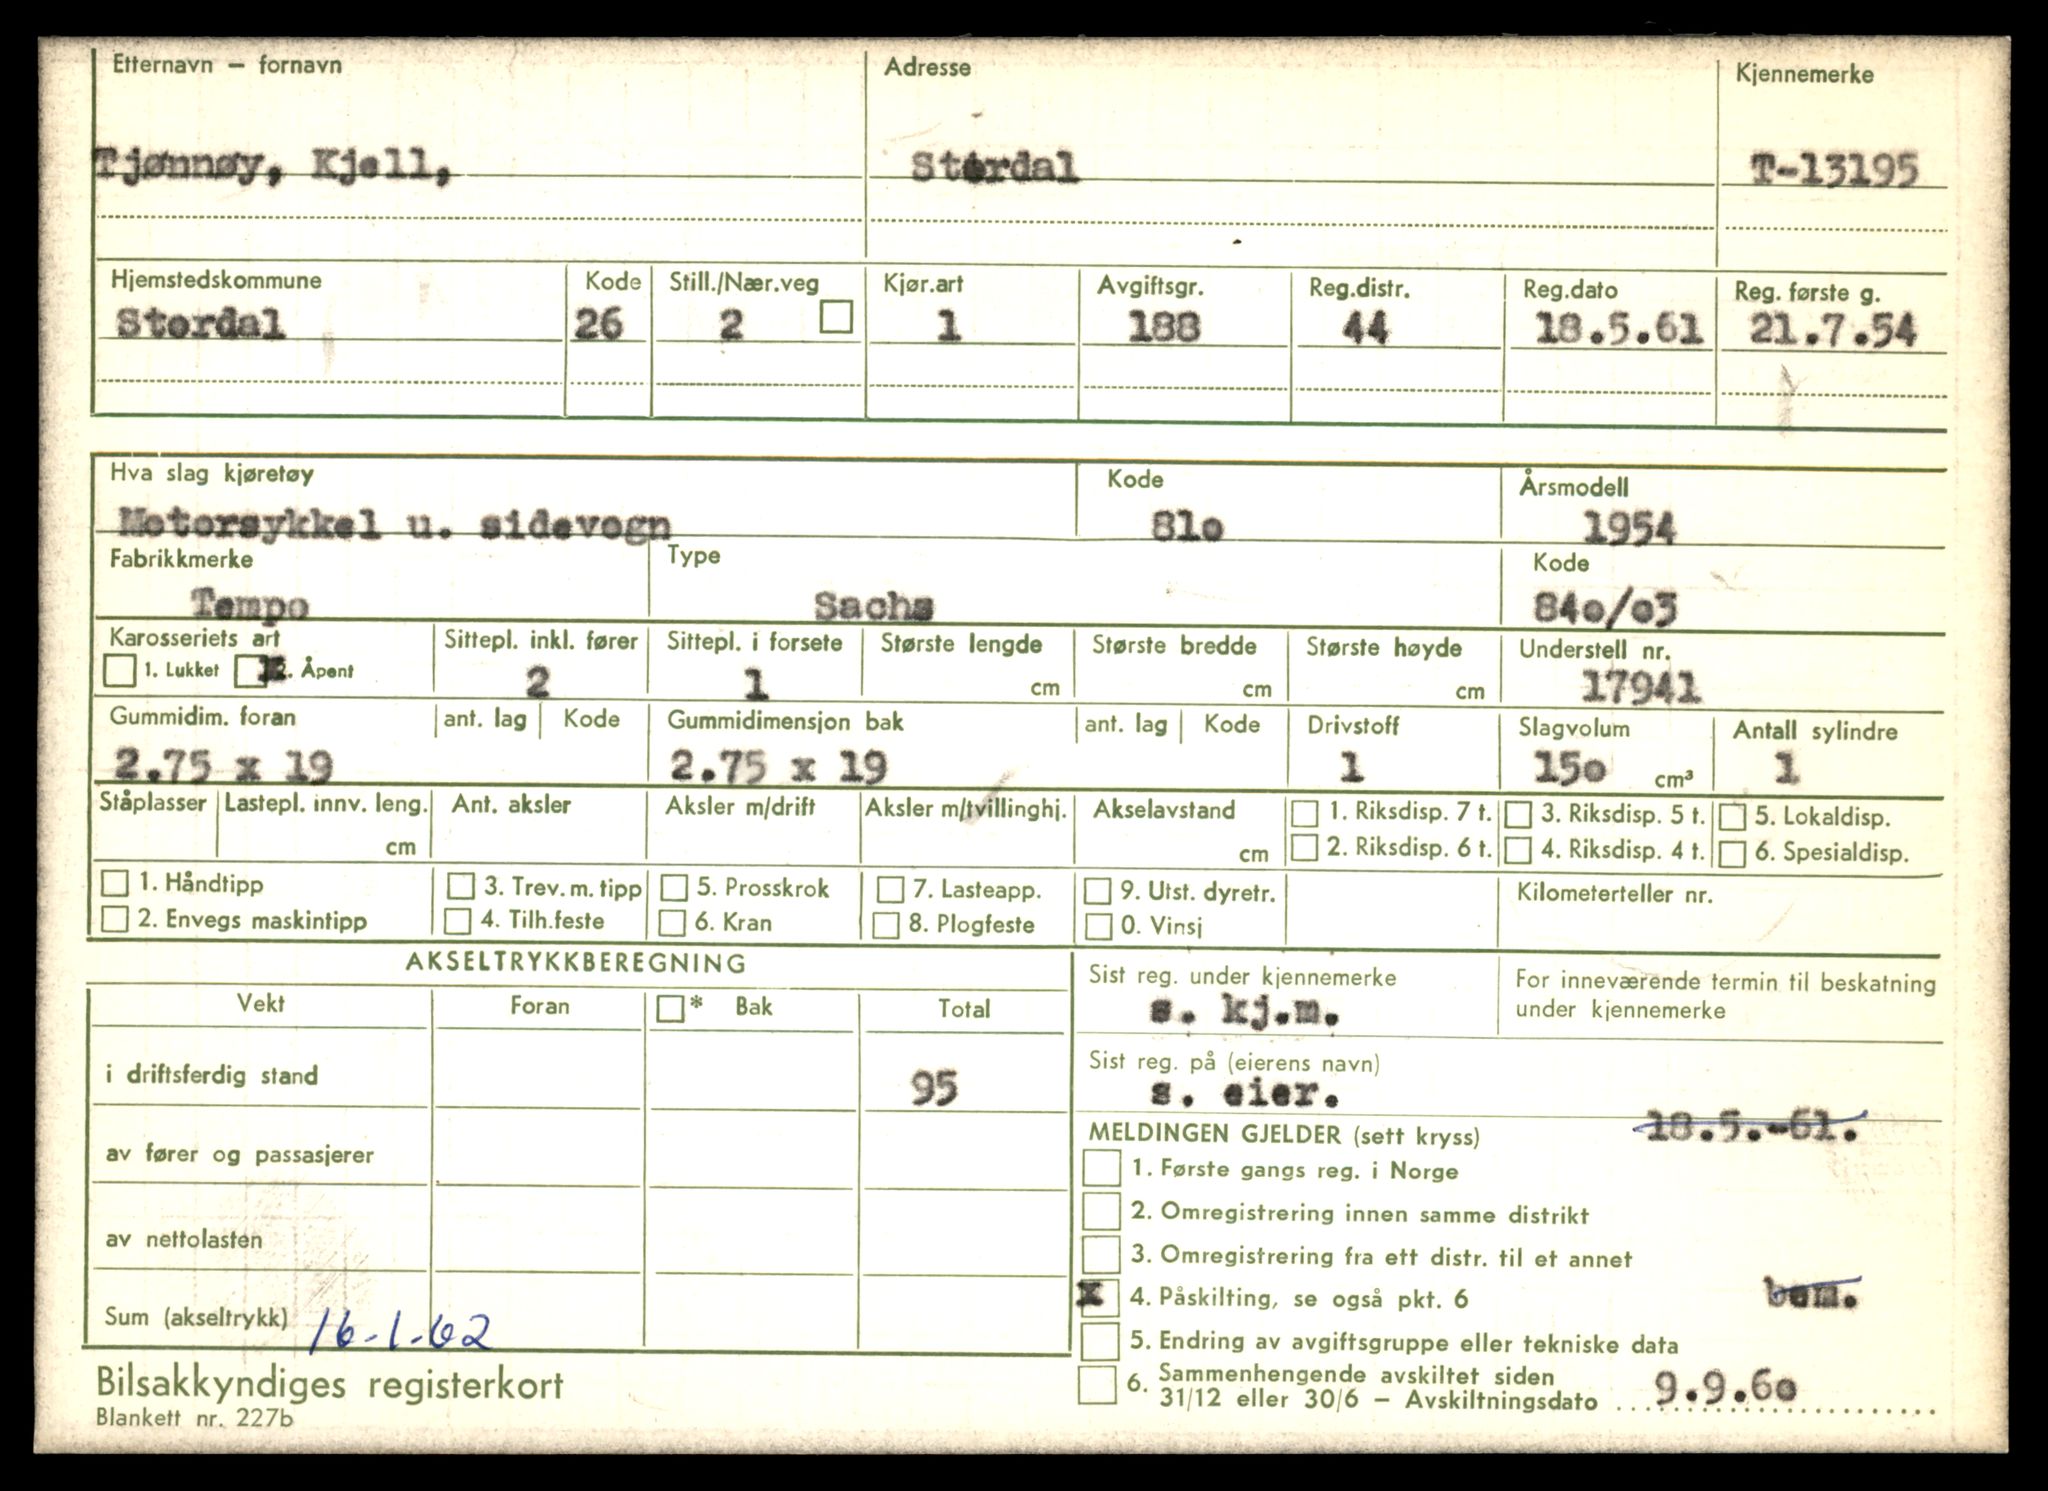 Etternavn – fornavn Adresse Kjennemerke
Tjønnøy, Kjell, Stordal T-13195
Hjemstedskommune Kode Still./Nær.veg Kjør.art Avgiftsgr. Reg.distr. Reg.dato Reg. første g.
Stordal 26 2 1 188 44 18.5.61 21.7.54
Hva slag kjøretøy Kode Årsmodell
Motorsykkel u. sidevogn 81o 1954
Fabrikkmerke Type Kode
Tempo Sachs 84o/o3
Karosseriets art Sittepl. inkl. fører Sittepl. i forsete Største lengde Største bredde Største høyde Understell nr.
1. Lukket x 2. Åpent 2 1 cm cm cm 17941
Gummidim. foran ant. lag Kode Gummidimensjon bak ant. lag Kode Drivstoff Slagvolum Antall sylindre
2.75 x 19 2.75 x 19 1 15o cm³ 1
Ståplasser Lastepl. innv. leng. Ant. aksler Aksler m/drift Aksler m/tvillinghj. Akselavstand 1. Riksdisp. 7 t. 3. Riksdisp. 5 t. 5. Lokaldisp.
cm cm 2. Riksdisp. 6 t. 4. Riksdisp. 4 t. 6. Spesialdisp.
1. Håndtipp 3. Trev. m. tipp 5. Prosskrok 7. Lasteapp. 9. Utst. dyretr. Kilometerteller nr.
2. Envegs maskintipp 4. Tilh.feste 6. Kran 8. Plogfeste 0. Vinsj
AKSELTRYKKBEREGNING
Vekt Foran * Bak Total
i driftsferdig stand 95
av fører og passasjerer
av nettolasten
Sum (akseltrykk) 16-1-62
Sist reg. under kjennemerke For inneværende termin til beskatning
s. kj.m. under kjennemerke
Sist reg. på (eierens navn)
s. eier.
MELDINGEN GJELDER (sett kryss) 18.5.-61.
1. Første gangs reg. i Norge
2. Omregistrering innen samme distrikt
3. Omregistrering fra ett distr. til et annet
x 4. Påskilting, se også pkt. 6 bem.
5. Endring av avgiftsgruppe eller tekniske data
6. Sammenhengende avskiltet siden
31/12 eller 30/6 – Avskiltningsdato 9.9.6o
Bilsakkyndiges registerkort
Blankett nr. 227b